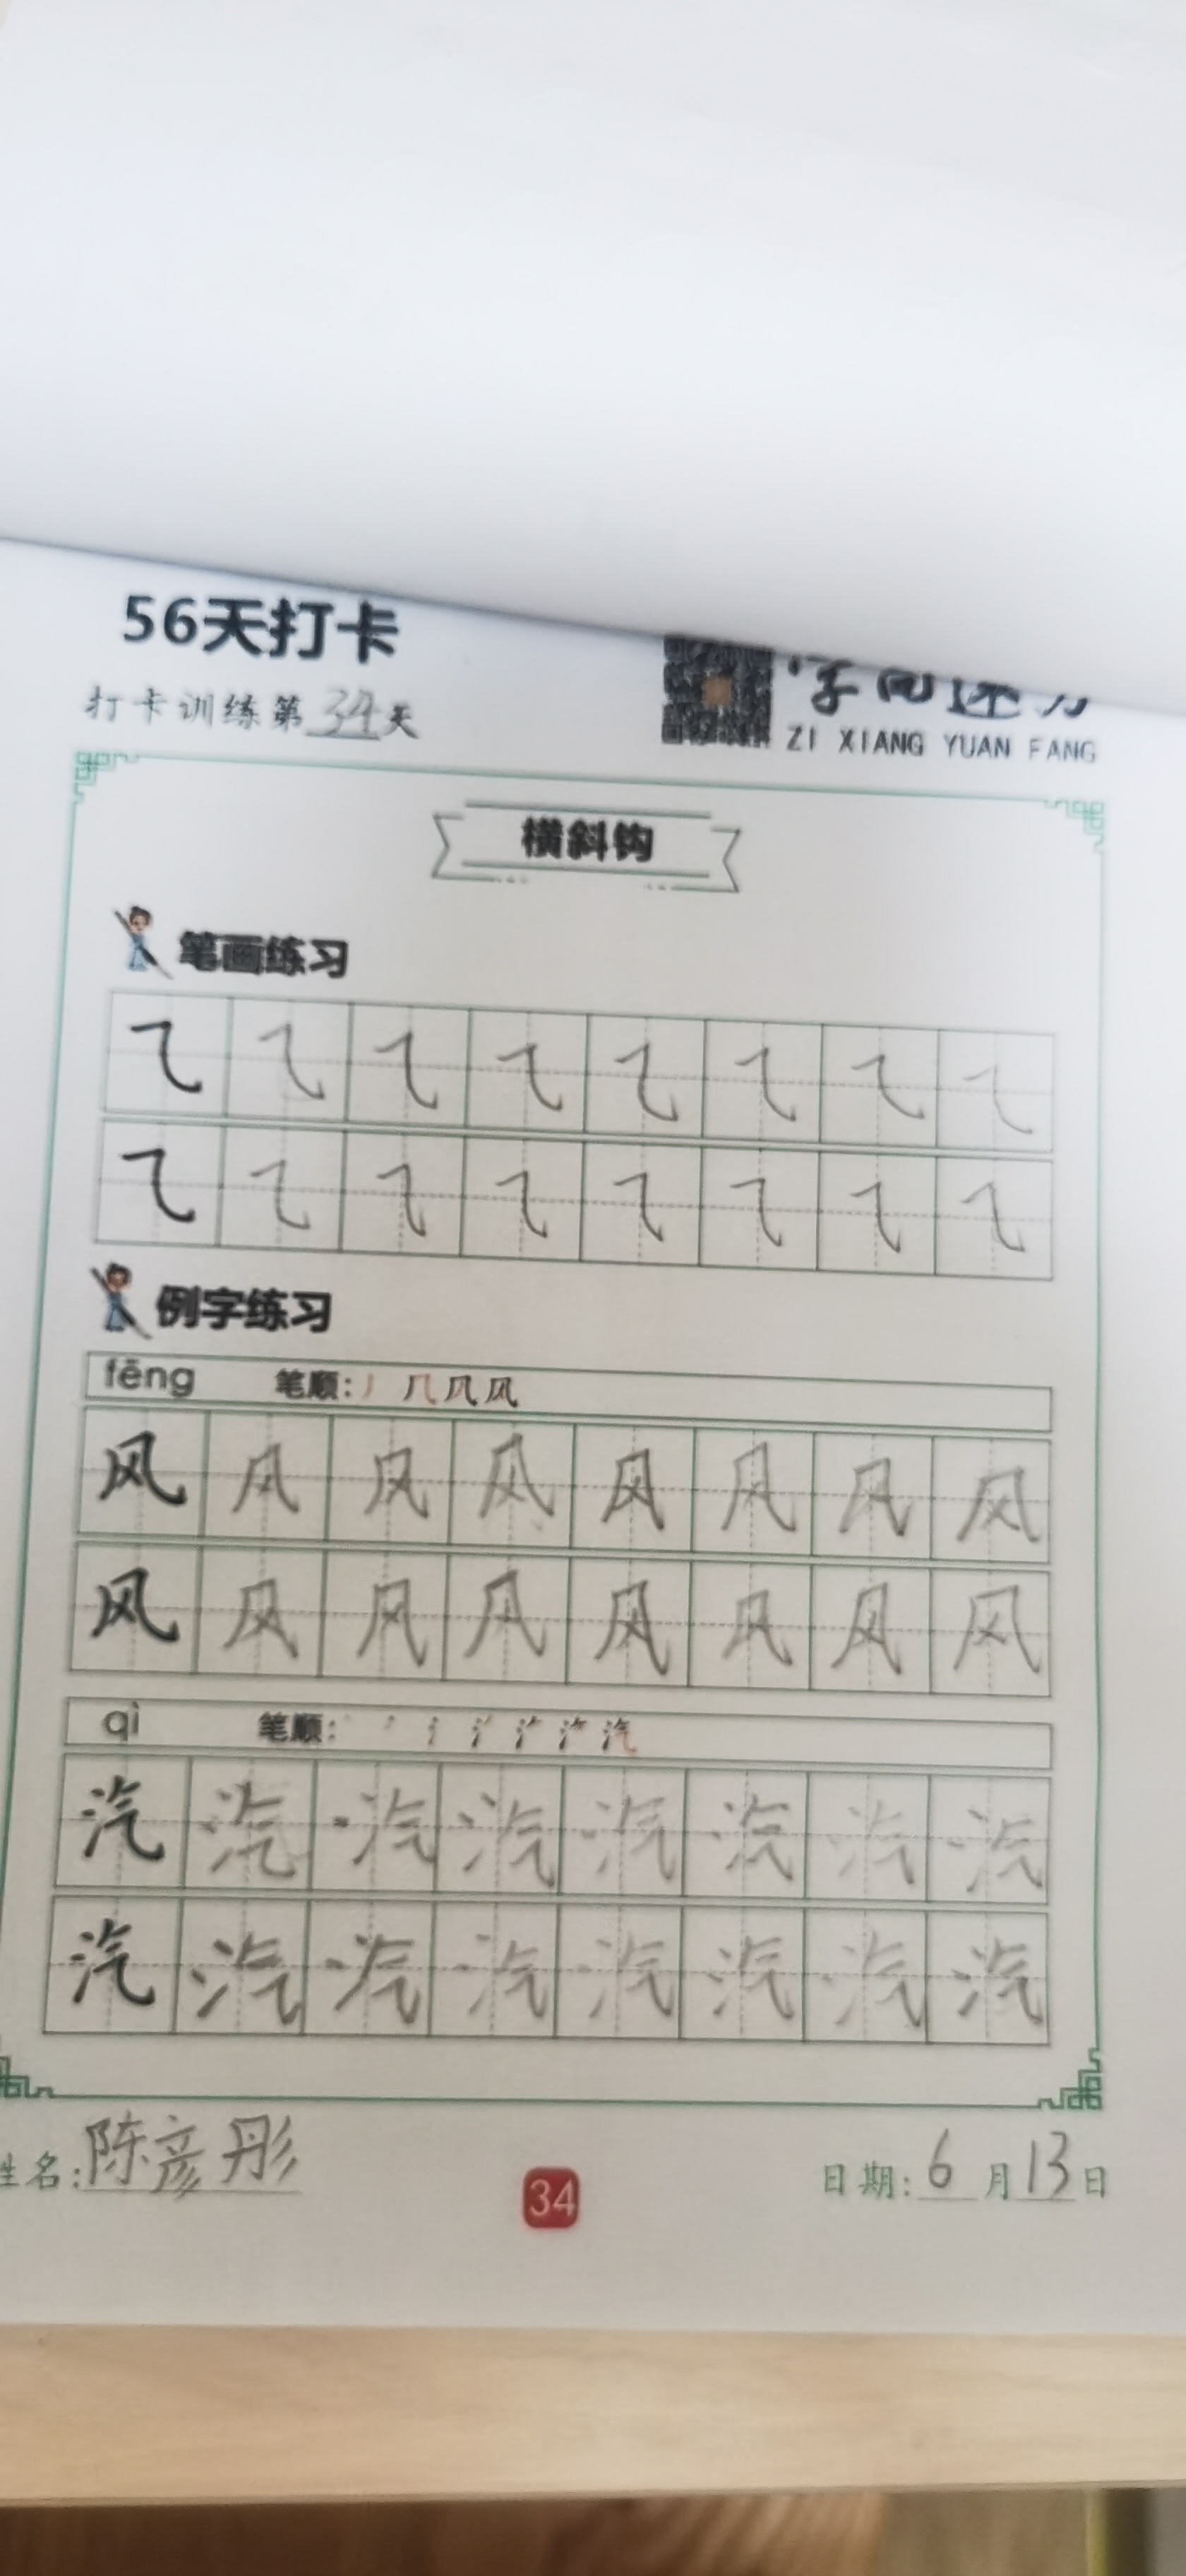 56天打卡
打卡训练第34天
ZI XIANG YUAN FANG
横斜钩
笔画练习
㇈ ㇈ ㇈ ㇈ ㇈ ㇈ ㇈ ㇈
㇈ ㇈ ㇈ ㇈ ㇈ ㇈ ㇈ ㇈
例字练习
fēng 笔顺: 丿 几 凡 风
风 风 风 风 风 风 风 风
风 风 风 风 风 风 风 风
qì 笔顺: 汽
汽 汽 汽 汽 汽 汽 汽 汽
汽 汽 汽 汽 汽 汽 汽 汽
姓名:陈彦彤
34
日期:6月13日